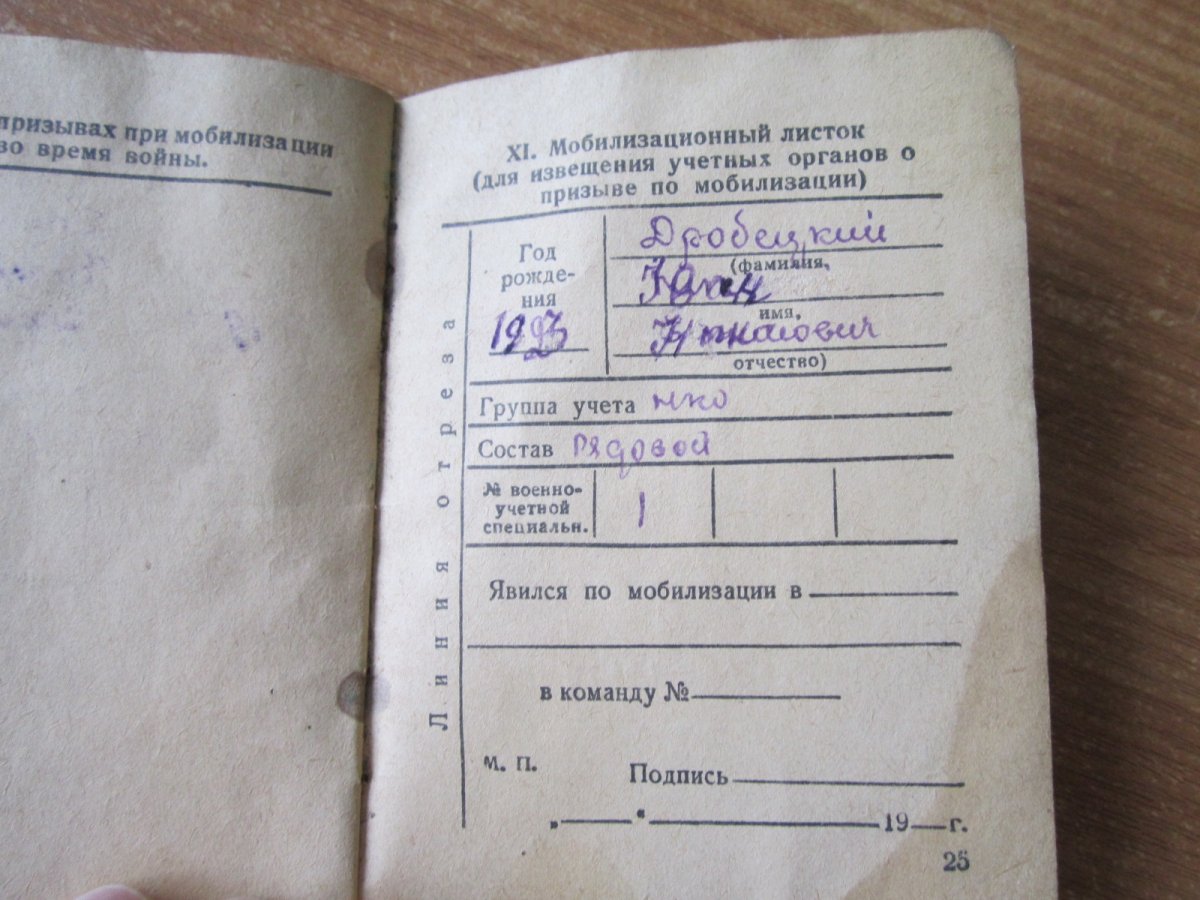 призывах при мобилизации
во время войны.
XI. Мобилизационный листок
(для извещения учетных органов о
призыве по мобилизации)
Линия отреза
Год
рожде-
ния
Дробецкий
(фамилия,
имя,
отчество)
Группа учета нко
Состав Рядовой
№ военно-
учетной
специальн.
1
Явился по мобилизации в
в команду №
М. П.
Подпись
„ “ 19 г.
25